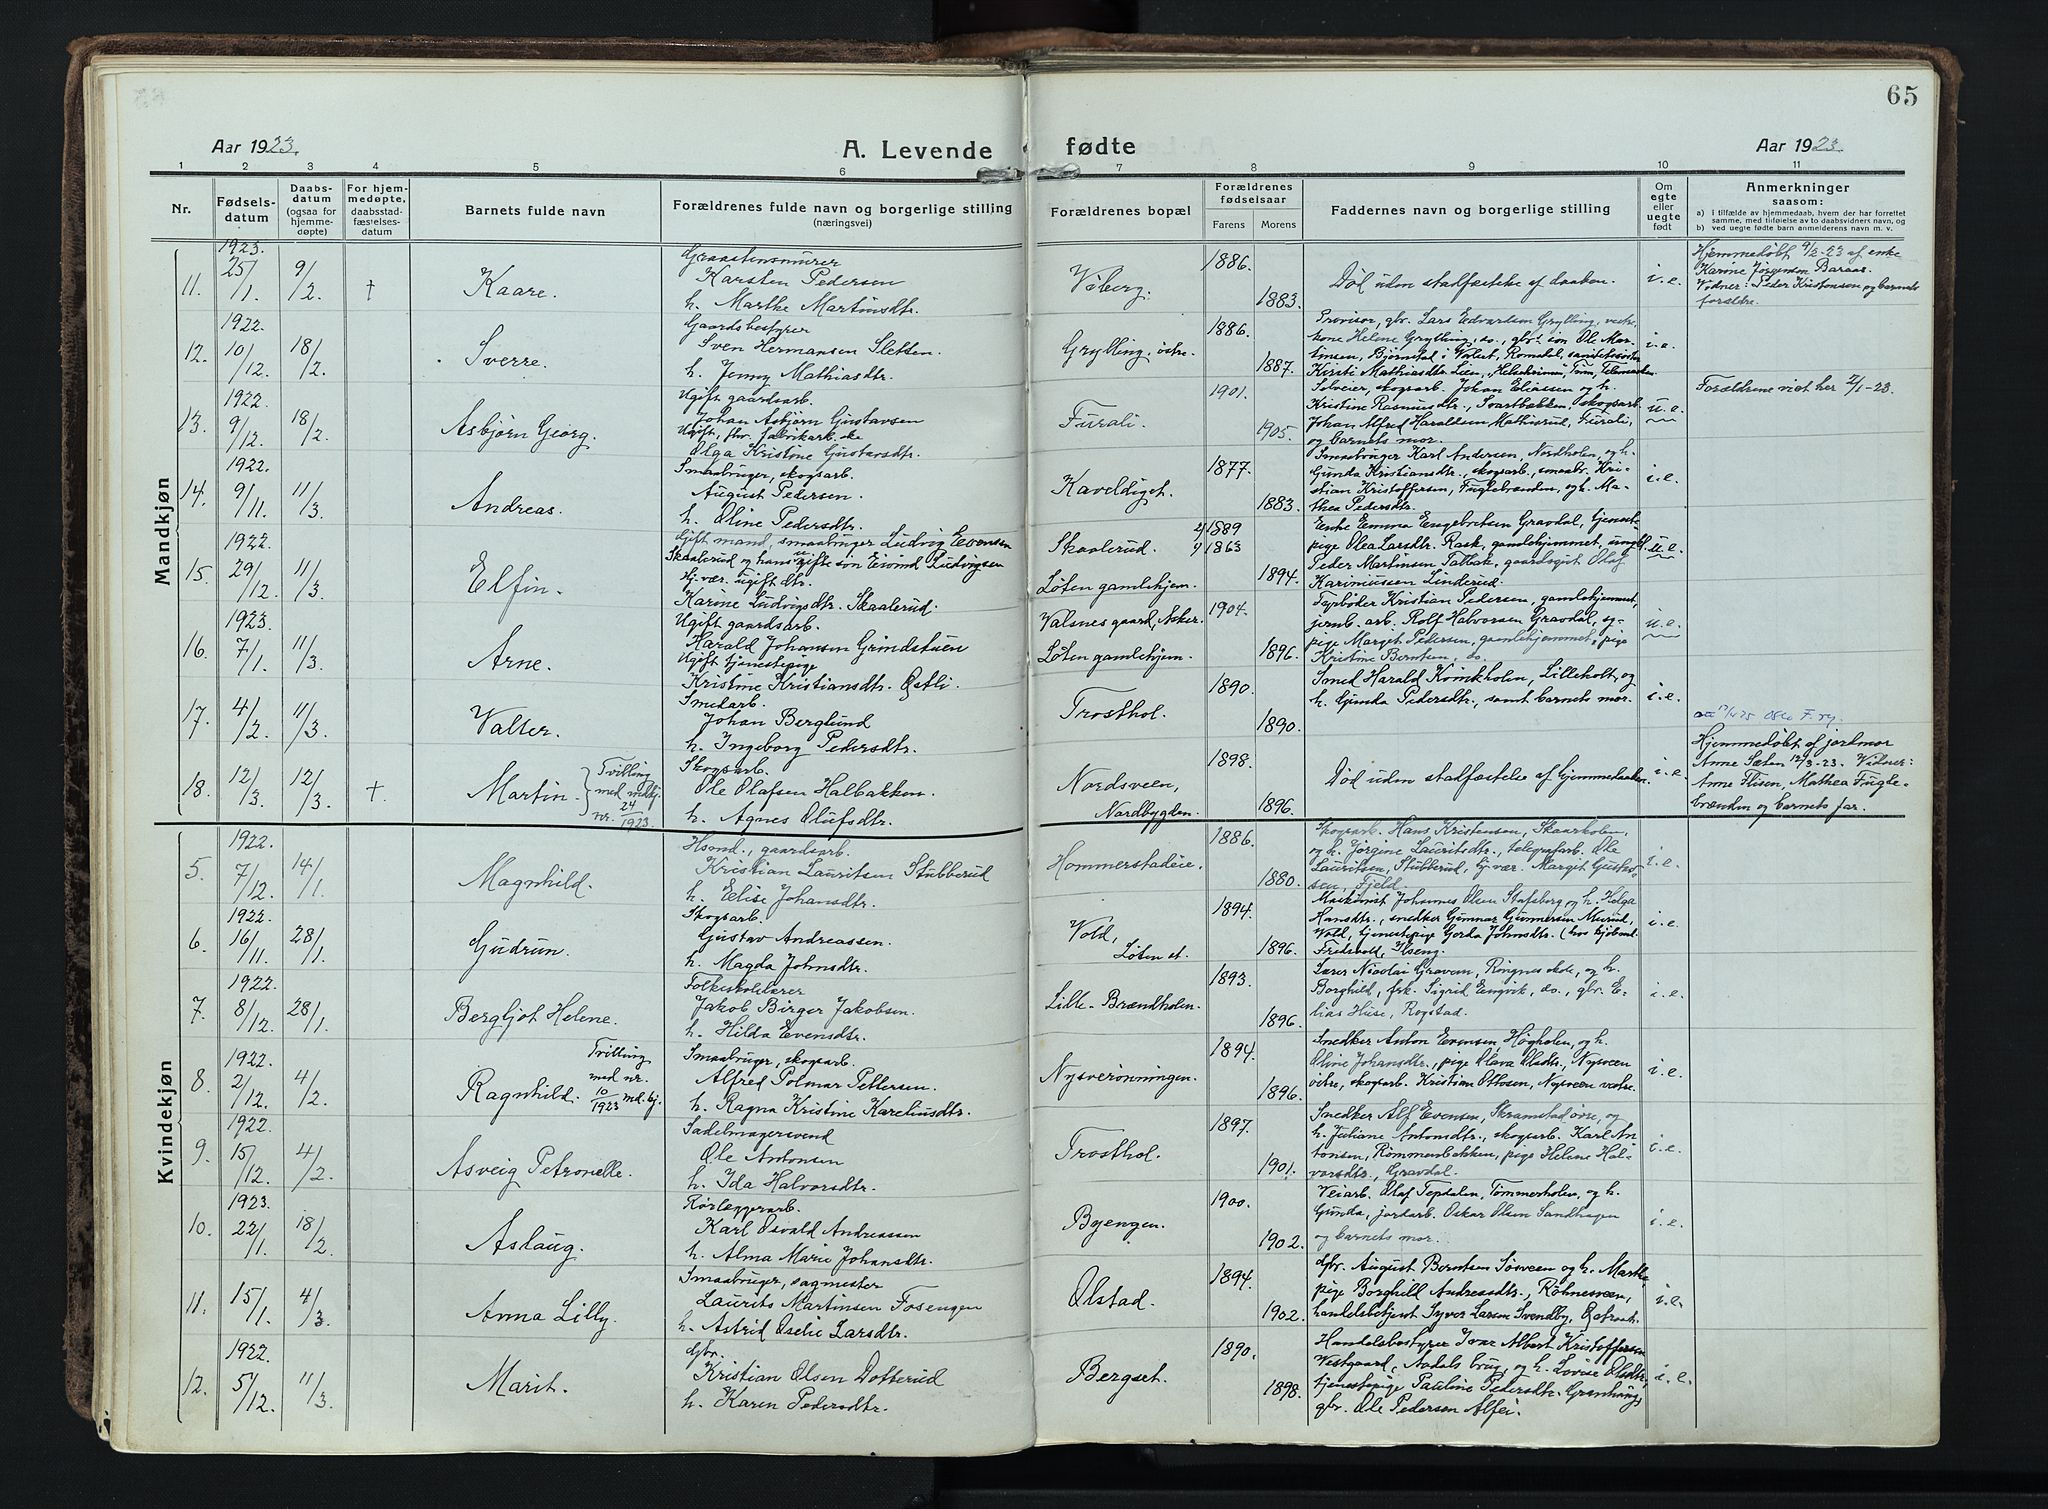 65
Aar 1923.
A. Levende fødte
Aar 1923.
1 2 3 4 5 6 7 8 9 10 11
Nr.
Fødselsdatum
Daabsdatum (ogsaa for hjemmedøpte)
For hjemmedøpte, daabsstadfæstelsesdatum
Barnets fulde navn
Forældrenes fulde navn og borgerlige stilling (næringsvei)
Forældrenes bopæl
Forældrenes fødselsaar
Farens
Morens
Faddernes navn og borgerlige stilling
Om egte eller uegte født
Anmerkninger saasom:
a) i tilfælde av hjemmedaab, hvem der har forrettet samme, med tilføielse av to daabsvidners navn, og
b) ved uegte fødte barn anmelderens navn m. v.
Mandkjøn
11. 1923. 25/1. 9/2. † Kaare.
Graastensmurer
Karsten Pedersen
h. Marthe Martinsdtr.
Viberg. 1886. 1883.
Død uden stadfæstelse af daaben. i.e.
Hjemmedøbt 9/2-23 af enke
Karine Jørgensen Baraas.
Vidner: Peder Kristensen og barnets
forældre.
12. 1922. 10/12. 18/2. Sverre.
Gaardsbestyrer
Sven Hermansen Sletten.
h. Jenny Mathiasdtr.
Grylling, østre. 1886. 1887.
Provisor, gbr. Lars Edvartsen Grylling,
kone Helene Grylling, do., gbr. søn Ole Mar-
tinsen, Bjørnstad i Valset, Romedal,
Kersti Mathiasdtr. Lien, "Helseheimen", Tinn, Telemarken.
i.e.
13. 1922. 9/12. 18/2. Asbjørn Georg.
Ugift gaardsarb.
Johan Asbjørn Gustavsen
Ugift, fhv. fabrikarb.ske
Olga Kristine Gustavsdtr.
Furali. 1901. 1905.
Selveier, skogsarb. Johan Eliassen og h.
Kristine Rasmusdtr., Svartbækken, skogsarb.
Johan Alfred Haraldsen Mathisrud, Furali,
og barnets mor.
u.e.
Forældrene viet her 7/1-23.
14. 1922. 9/11. 11/3. Andreas.
Smaabruger, skogsarb.
August Pedersen.
h. Oline Pedersdtr.
Kaveldiget. 1877. 1883.
Smaabruger Karl Andersen, Nordholen, og h.
Gunda Kristiansdtr., skogsarb., smaabr. Kri-
stian Kristoffersen, Fuglebrænden, og h. Ma-
thea Pedersdtr.
i.e.
15. 1922. 29/12. 11/3. Elfin.
Gift mand, smaabruger Ludvig Evensen
Skaalerud og hans ugifte søn Eivind Ludvigsen
Hj.vær. ugift dtr.
Karine Ludvigsdtr. Skaalerud.
Skaalerud.
Løten gamlehjem.
1889 1863 1894.
Enke Emma Engebretsen Gravdal, tjeneste-
pige Olea Larsdtr. Rask, gamlehjemmet, ungkl.
Peder Martinsen Tatbak, gaardsgut Olaf
Kariniussen Linderud.
u.e.
16. 1923. 7/1. 11/3. Arne.
Ugift gaardsarb.
Harald Johansen Grindstuen
Ugift tjenestepige
Kristine Kristiansdtr. Østli.
Valsnes gaard, Asker.
Løten gamlehjem.
1904. 1896.
Tapbøder Kristian Pedersen, gamlehjemmet,
jernb. arb. Rolf Halvorsen Gravdal, sy-
pige Margit Pedersen, gamlehjemmet, pige
Kristine Berntsen, do.
u.e.
17. 4/2. 11/3. Valter.
Smedarb.
Johan Berglund
h. Ingeborg Pedersdtr.
Trosthol. 1890. 1890.
Smed Harald Kornkholen, Lilleholt, og
h. Gunda Pedersdtr., samt barnets mor.
i.e.
18. 12/3. 12/3. †. Martin. Tvilling med kvkj. nr. 24/1923.
Skogsarb.
Ole Olafsen Halbakken.
h. Agnes Olufsdtr.
Nordsveen,
Nordbygden.
1898. 1896.
Død uden stadfæstelse af hjemmedaaben. i.e.
Hjemmedøbt af jordmor
Anne Sæten 12/3-23. Vidner:
Anne Flisen, Mathea Fugle-
brænden og barnets far.
Kvindekjøn
5. 1922. 7/12. 14/1. Magnhild.
Hsmd., gaardsarb.
Kristian Lauritsen Stubberud
h. Elise Johansdtr.
Hommerstadeie. 1886. 1880.
Skogsarb. Hans Kristensen, Skaarholen,
og h. Jørgine Lauritsdtr., telegrafarb. Ole
Lauritsen, Stubberud, hj.vær. Margit Gustav-
sen, Fjeld.
i.e.
6. 1922. 16/11. 28/1. Gudrun.
Skogsarb.
Gustav Andreassen.
h. Magda Johnsdtr.
Vold,
Løten st.
1894. 1896.
Maskinist Johannes Olsen Stafsberg og h. Helga
Hansdtr., snedker Gunnar Gunnersen Myrud,
Vold, tjenestepige Gorda Johnsdtr. (hos kjøbmd.
Fredvold, Ilseng.
i.e.
7. 1922. 8/12. 28/1. Bergljot Helene.
Folkeskolelærer
Jakob Birger Jakobsen.
h. Hilda Evensdtr.
Lille-Brændholen. 1893. 1896.
Lærer Nicolai Gravem, Ringnes skole, og h.
Borghild, frk. Sigrid Engvik, do., gbr. E-
lias Huse, Rogstad.
i.e.
8. 1922. 2/12. 4/2. Ragnhild. Tvilling med nr. 10/1923 md.kj.
Smaabruger, skogsarb.
Alfred Polmar Pettersen.
h. Ragna Kristine Kareliusdtr.
Nysverønningen. 1894. 1896.
Snedker Anton Evensen Høgholen, og h.
Oline Johansdtr., pige Olava Olsdtr., Nysveen
østre, skogsarb. Kristian Ottosen, Nysveen vestre.
i.e.
9. 1922. 15/12. 4/2. Asveig Petronelle.
Sadelmagersvend
Ole Antonsen
h. Ida Halvorsdtr.
Trosthol. 1897. 1901.
Snedker Alf Evensen, Skramstad øvre, og
h. Juliane Antonsdtr., skogsarb. Karl An
tonsen, Rømmenbækken, pige Helene Hal-
vorsdtr., Gravdal.
i.e.
10. 1923. 22/1. 18/2. Aslaug.
Rørlæggerarb.
Karl Osvald Andreassen
h. Alma Marie Johansdtr.
Byengen. 1900. 1902.
Veiarb. Olaf Tepdalen, Tømmerholen, og h.
Gunda, jordarb. Oskar Olsen Sandhagen
og barnets mor.
i.e.
11. 15/1. 4/3. Anna Lilly.
Smaabruger, sagmester
Laurits Martinsen Fosengen
h. Astrid Oselie Larsdtr.
Ølstad. 1894. 1902.
Gbr. August Berntsen Søsveen og h. Marthe
pige Borghild Andreasdtr., Røhnesveen,
handelsbetjent Syver Larsen Svendby,
i.e.
12. 1922. 5/12. 11/3. Marit.
Gbr.
Kristian Olsen Dotterud
h. Karen Pedersdtr.
Bergset. 1890. 1898.
Handelsbestyrer Ivar Albert Kristoffersen
Vestgaard, Aadals brug, og h. Lovise Olsdtr.,
tjenestepige Pauline Pedersdtr.
gbr. Ole Pedersen Alfei.
i.e.